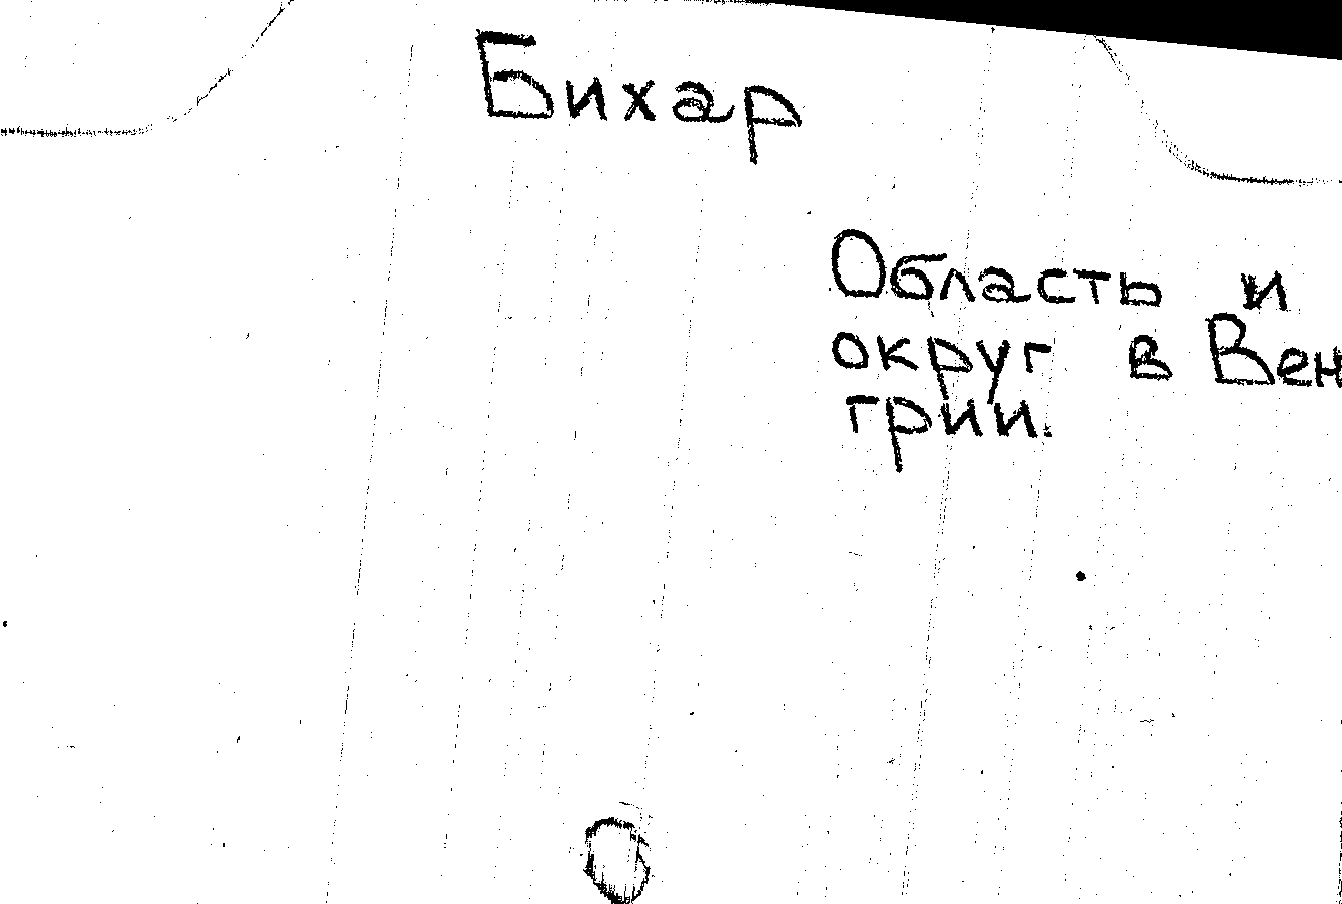 Бихар
Область и
округ в Вен
грии.